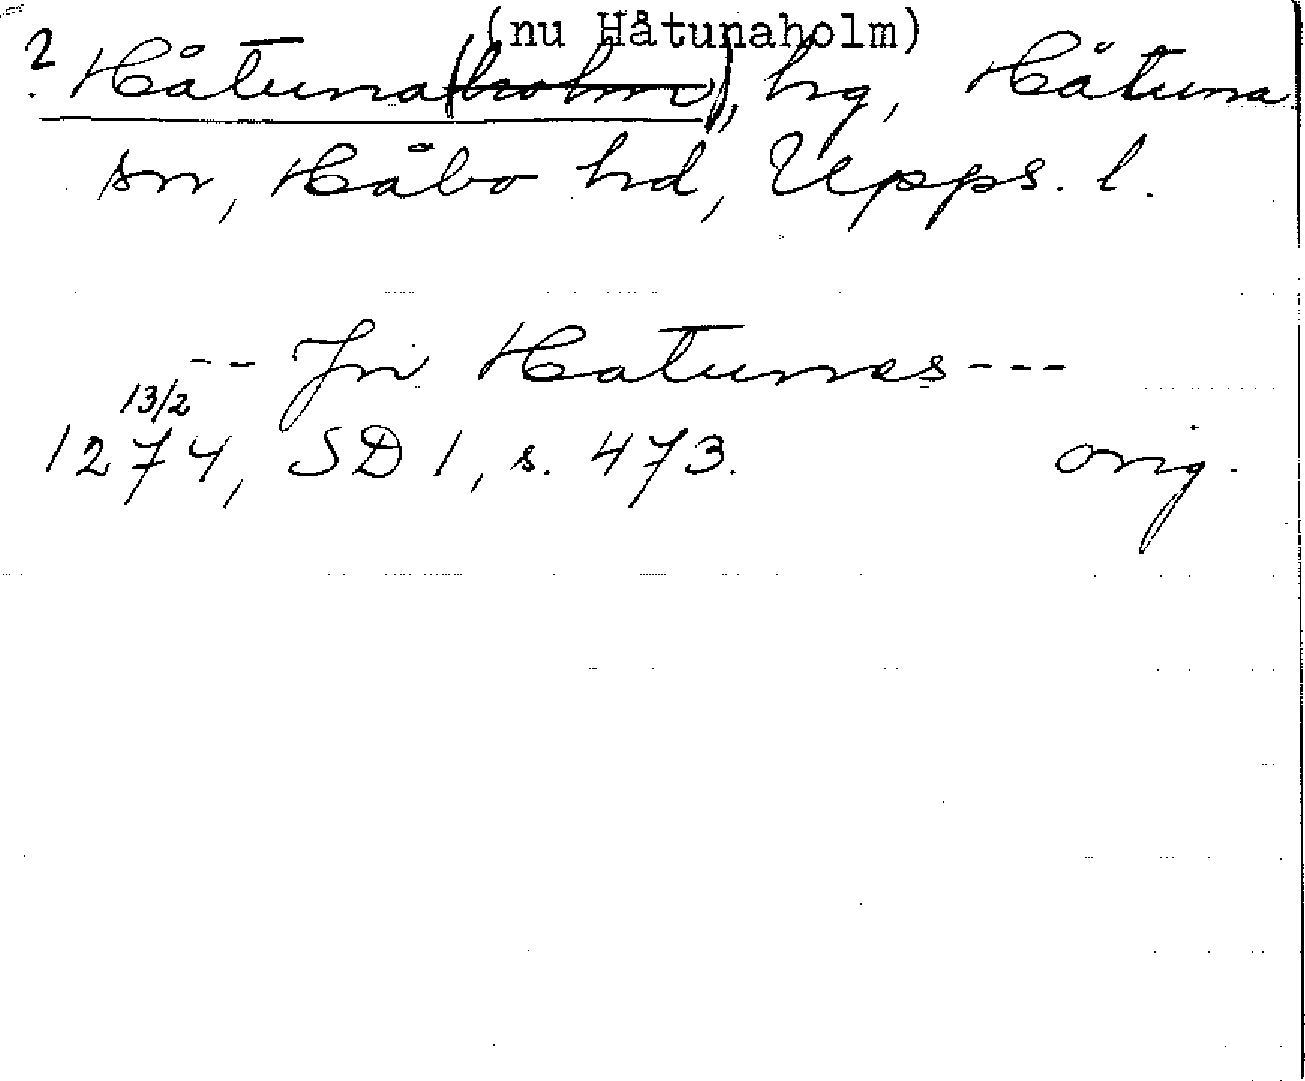 (nu Håtunaholm)
? Håtuna(holm), hg, Håtuna
sn, Håbo hd, Upps. l.
-- Jn Hatunes ---
13/2
1274, SD 1, s. 473. orig.